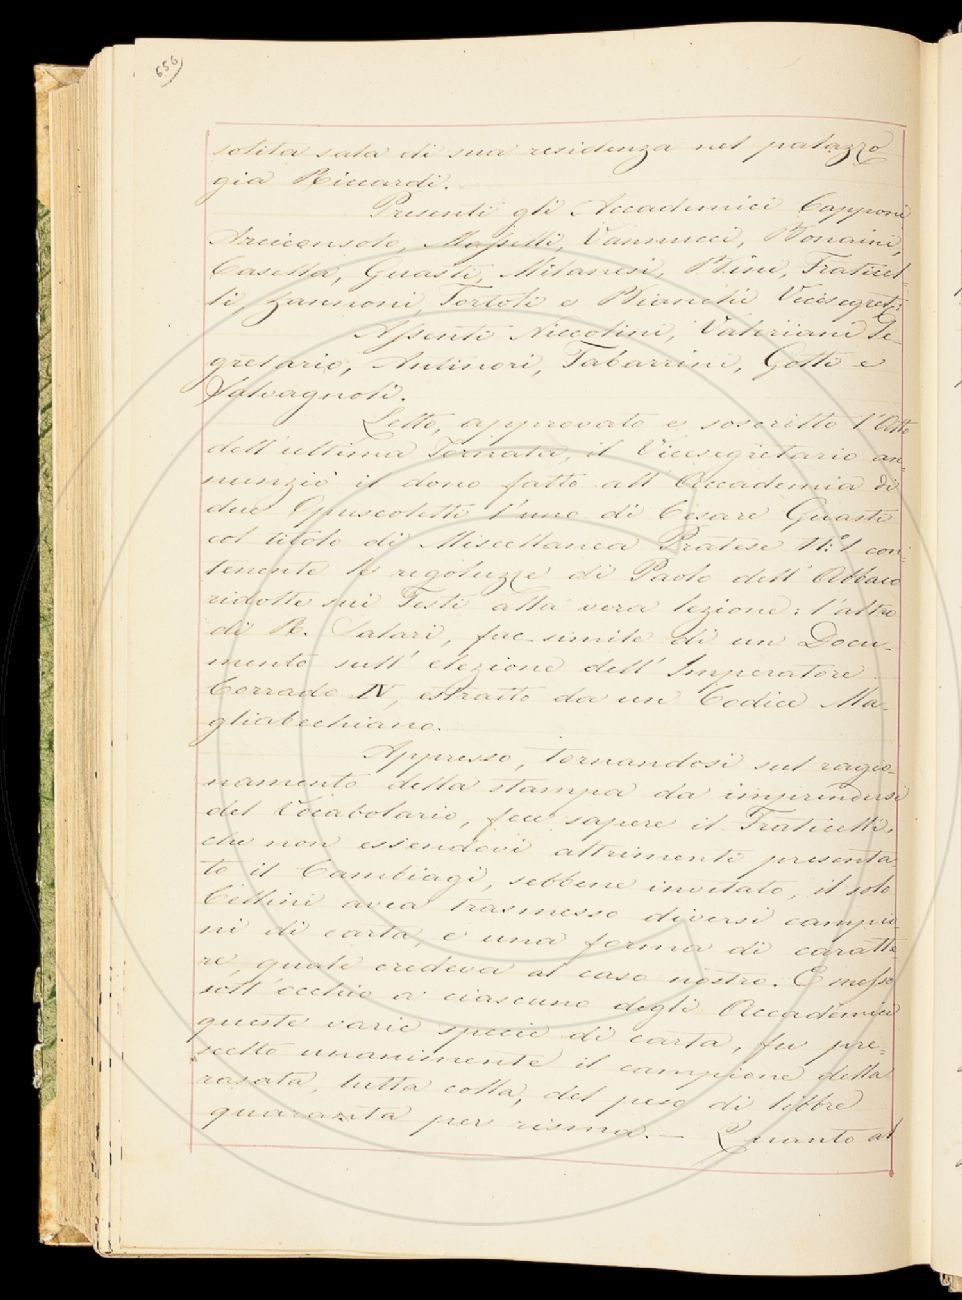 656
solita sala di sua residenza nel palazzo
già Riccardi.
Presenti gli Accademici Capponi
Arciconsolo, Masselli, Vannucci, Bonaini,
Casella, Guasti, Milanesi, Bini, Fraticel-
li, Zannoni, Tortoli e Bianchi Vicesegret:
Assenti Niccolini, Valeriani Se-
gretario, Antinori, Tabarrini, Gotti e
Salvagnoli.
Letto, approvato e soscritto l'Atto
dell'ultima Tornata, il Vicesegretario an-
nunziò il dono fatto all'Accademia di
due Opuscoletti l'uno di Cesare Guasti
col titolo di Miscellanea Pratese N.º 1 con-
tenente le regoluzze di Paolo dell'Abbaco
ridotte sui Testi alla vera lezione: l'altro
di R. Salari, fac-simile di un Docu-
mento sull'elezione dell'Imperatore
Corrado IV, estratto da un Codice Ma-
gliabechiano.
Appresso, tornandosi sul ragio-
namento della stampa da imprendersi
del Vocabolario, fece sapere il Fraticelli,
che non essendovi altrimenti presenta-
to il Cambiagi, sebbene invitato, il solo
Cellini avea trasmesso diversi campio-
ni di carta, e una forma di caratte-
re, quale credeva al caso nostro. E messo
sott'occhio a ciascuno degli Accademici
queste varie specie di carta, fu pre-
scelto unanimente il campione della
rasata, tutta colla, del peso di libbre
quaranta per risma. — Quanto al